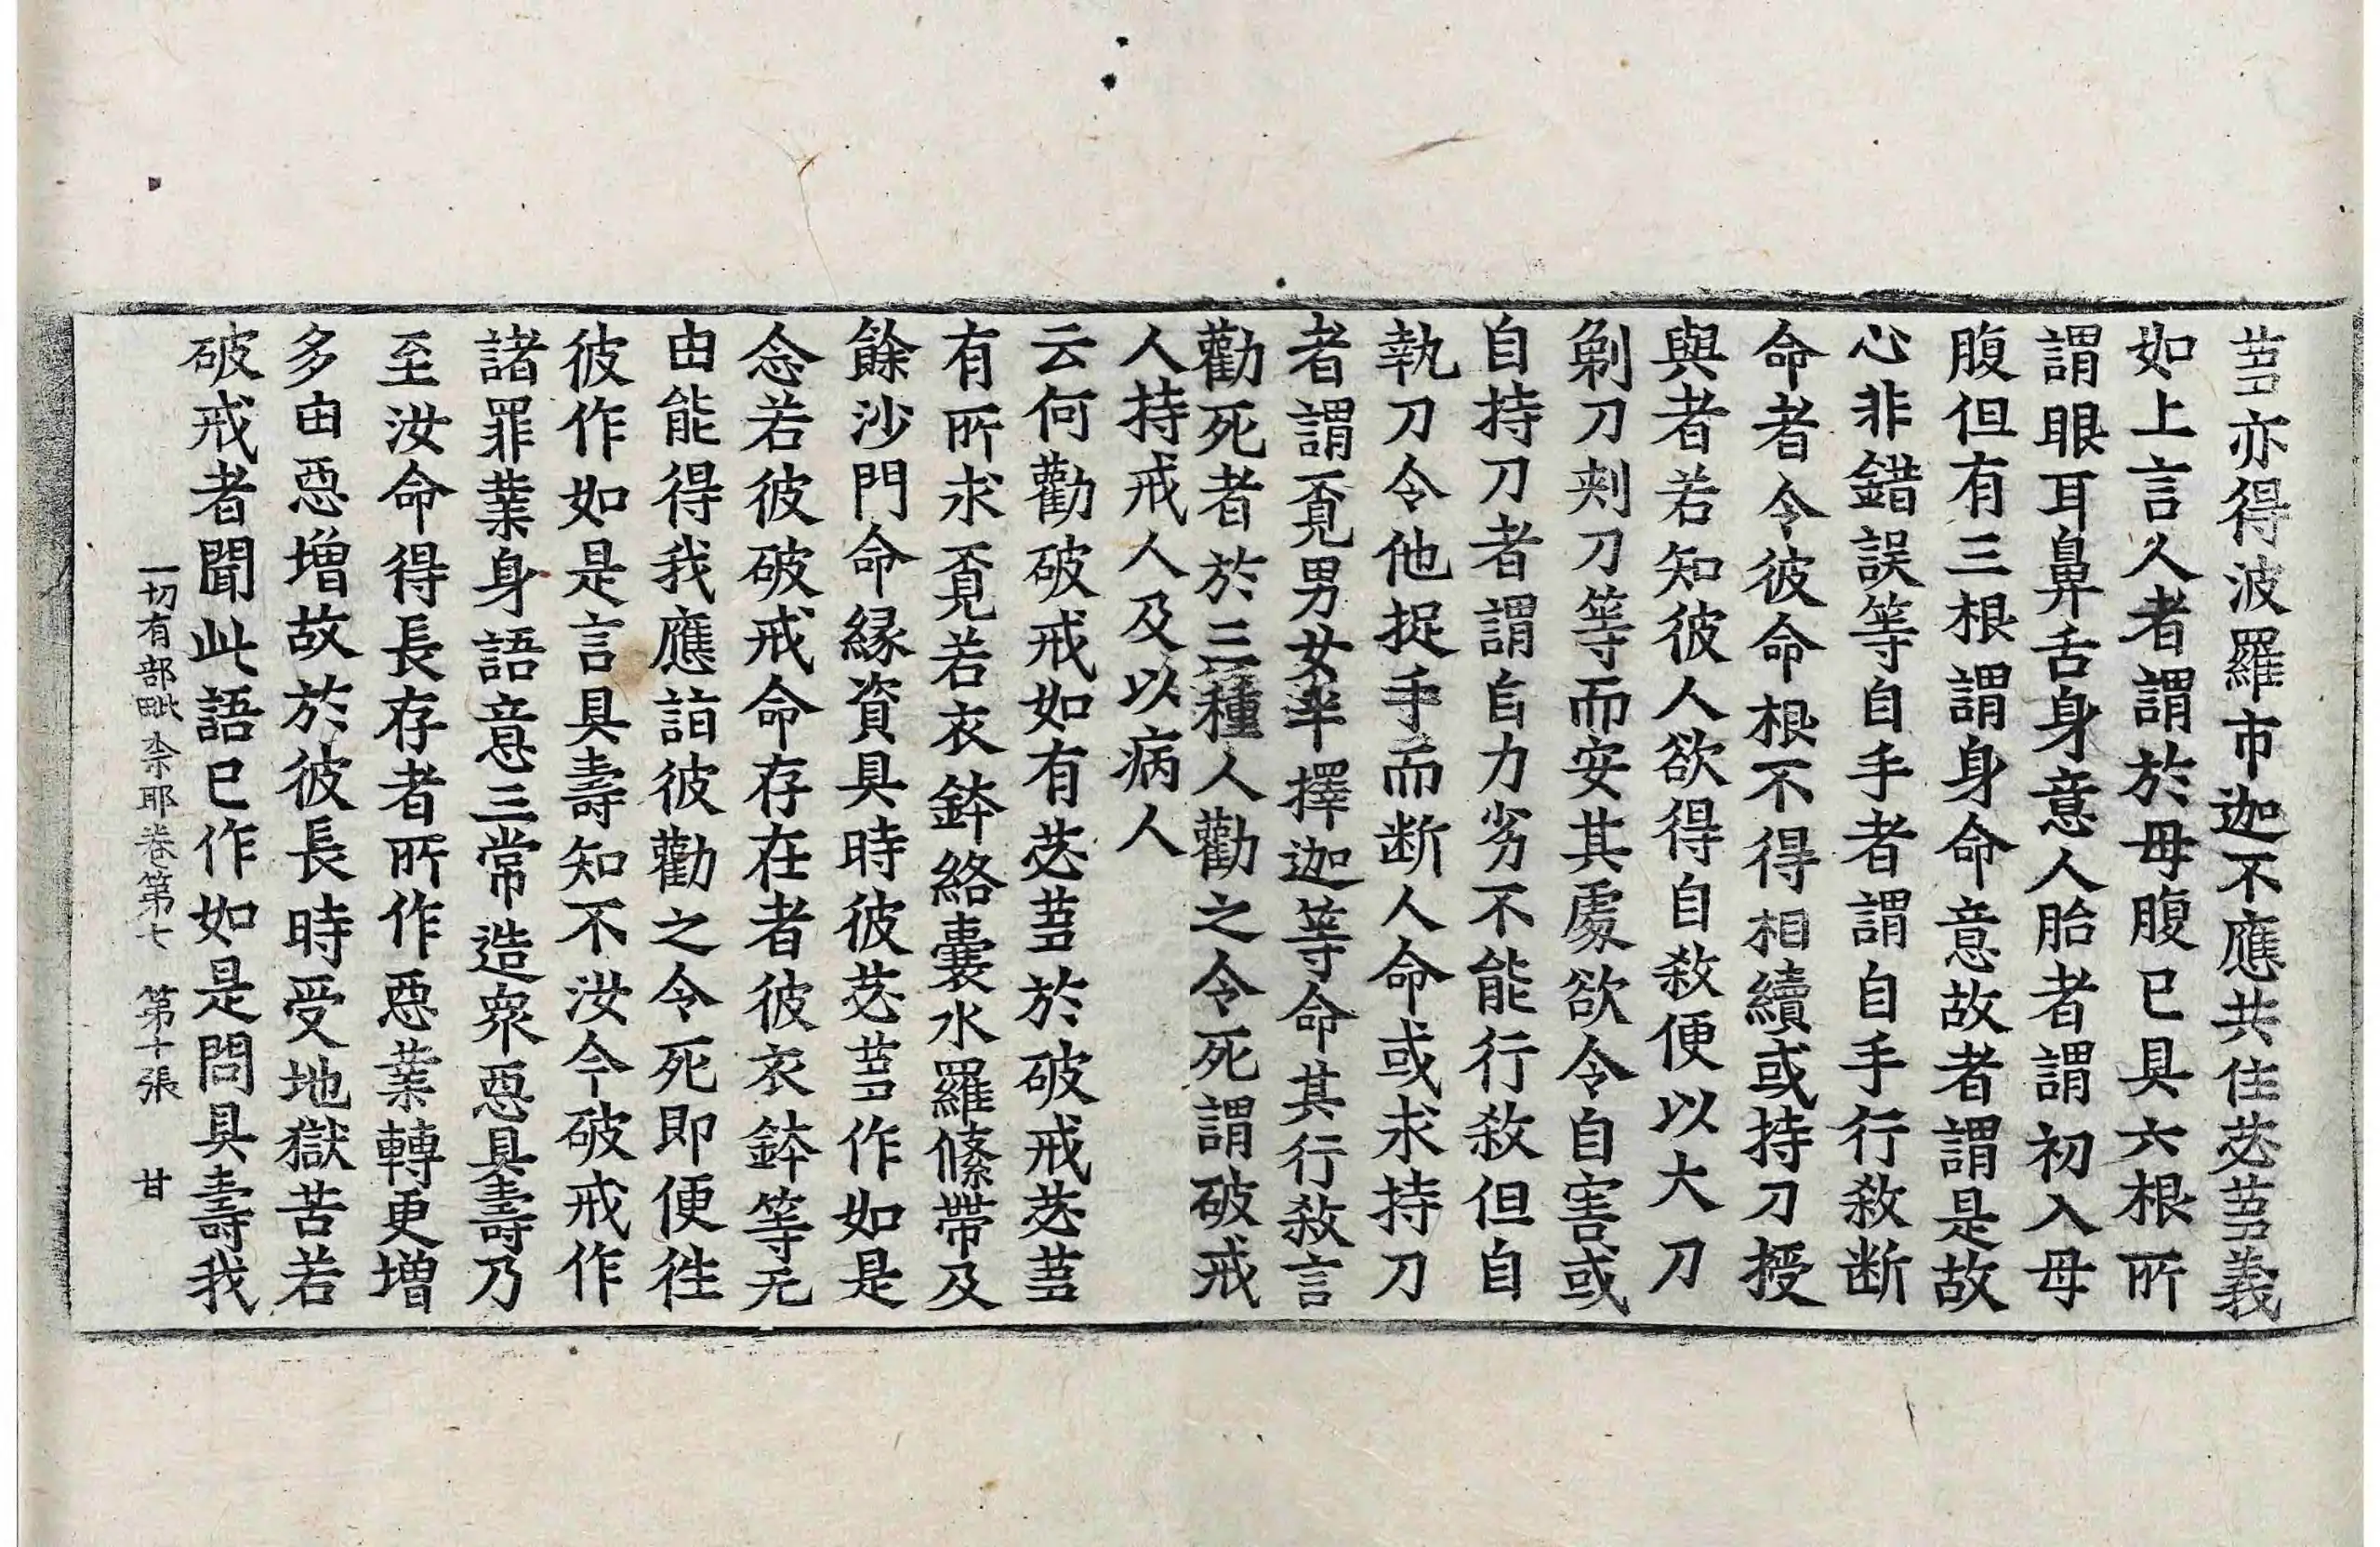 蒭亦得波羅市迦不應共住苾蒭義
如上言人者謂於母腹已具六根所
謂眼耳鼻舌身意人胎者謂初入母
腹但有三根謂身命意故者謂是故
心非錯誤等自手者謂自手行煞断
命者令彼命根不得相續或持刀授
與者若知彼人欲得自煞便以大刀
剃刀刾刀等而安其處欲令自害或
自持刀者謂自力劣不能行煞但自
執刀令他捉手而断人命或求持刀
者謂覔男女半擇迦等命其行煞言
勸死者於三種人勸之令死謂破戒
人持戒人及以病人
云何勸破戒如有苾蒭於破戒苾蒭
有所求覔若衣鉢絡囊水羅絛帶及
餘沙門命縁資具時彼苾蒭作如是
念若彼破戒命存在者彼衣鉢等无
由能得我應詣彼勸之令死即便徃
彼作如是言具壽知不汝今破戒作
諸罪業身語意三常造衆惡具壽乃
至汝命得長存者所作惡業轉更增
多由惡增故於彼長時受地獄苦若
破戒者聞此語已作如是問具壽我
一切有部毗奈耶卷第七　第十張　甘